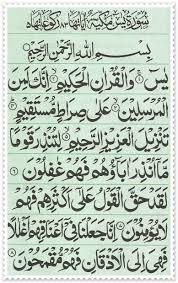 سُورَةُ يٰسٓ مَكِّيَّةٌ اٰيَاتُهَا ٨٣ رُكُوعَاتُهَا ٥
بِسْمِ اللّٰهِ الرَّحْمٰنِ الرَّحِيْمِ
يٰسٓ ۝١ وَالْقُرْاٰنِ الْحَكِيْمِ ۝٢ اِنَّكَ لَمِنَ
الْمُرْسَلِيْنَ ۝٣ عَلٰى صِرَاطٍ مُّسْتَقِيْمٍ ۝٤
تَنْزِيْلَ الْعَزِيْزِ الرَّحِيْمِ ۝٥ لِتُنْذِرَ قَوْمًا
مَّاۤ اُنْذِرَ اٰبَآؤُهُمْ فَهُمْ غٰفِلُوْنَ ۝٦
لَقَدْ حَقَّ الْقَوْلُ عَلٰۤى اَكْثَرِهِمْ فَهُمْ
لَا يُؤْمِنُوْنَ ۝٧ اِنَّا جَعَلْنَا فِيْۤ اَعْنَاقِهِمْ اَغْلٰلًا
فَهِيَ اِلَى الْاَذْقَانِ فَهُمْ مُّقْمَحُوْنَ ۝٨